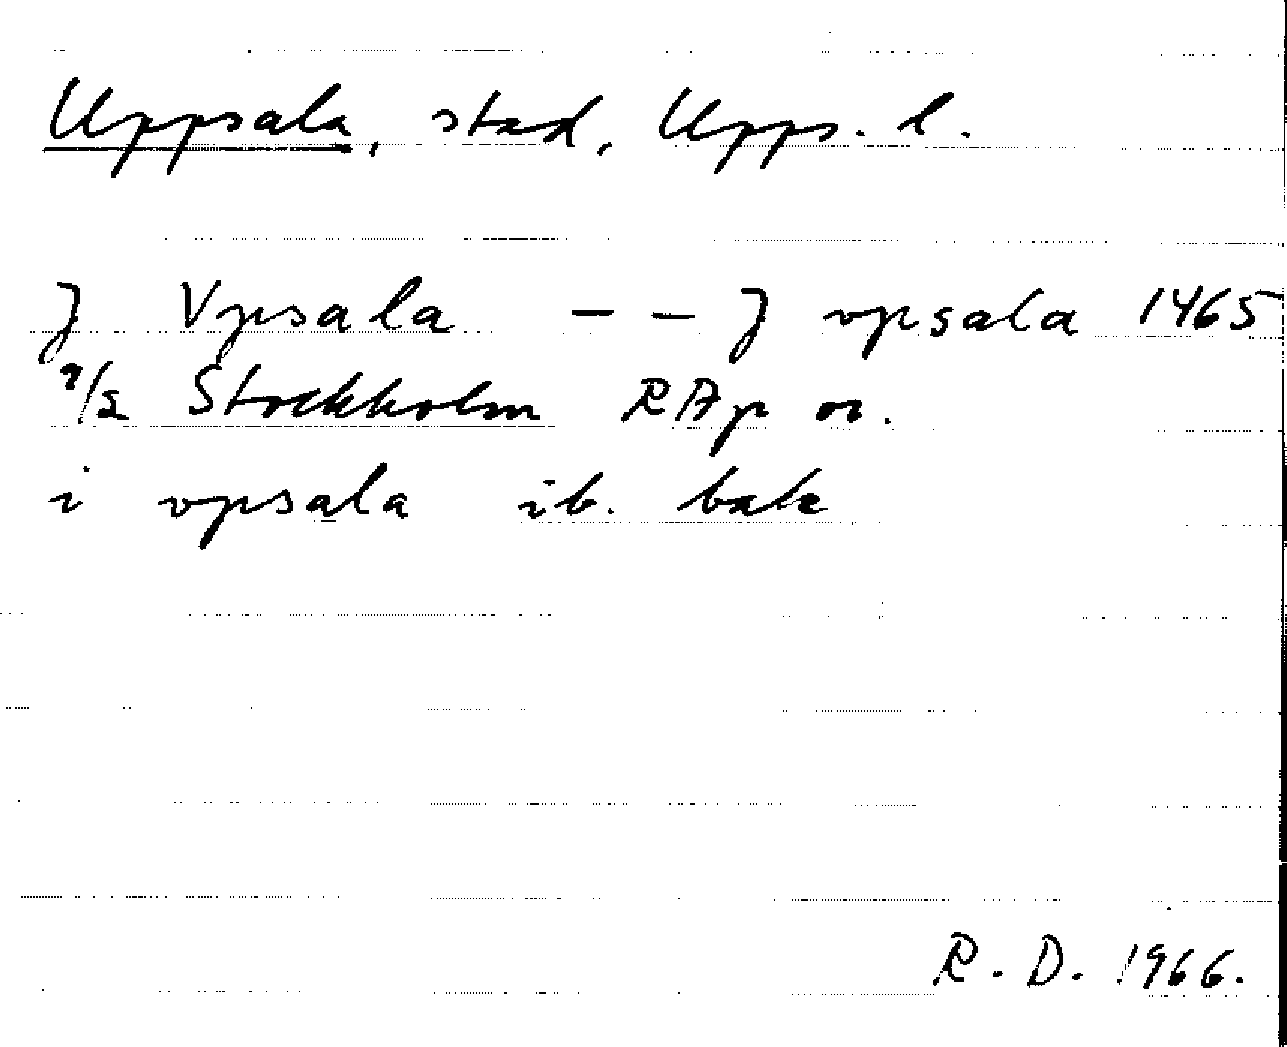 Uppsala, stad, Upps. l.
J Vpsala -- J vpsala 1465
9/2 Stockholm RAp or.
i vpsala ib. bak
R. D. 1966.